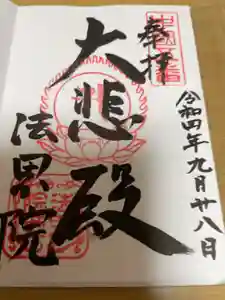 奉拝
令和四年九月廿八日
大悲殿
法恩院